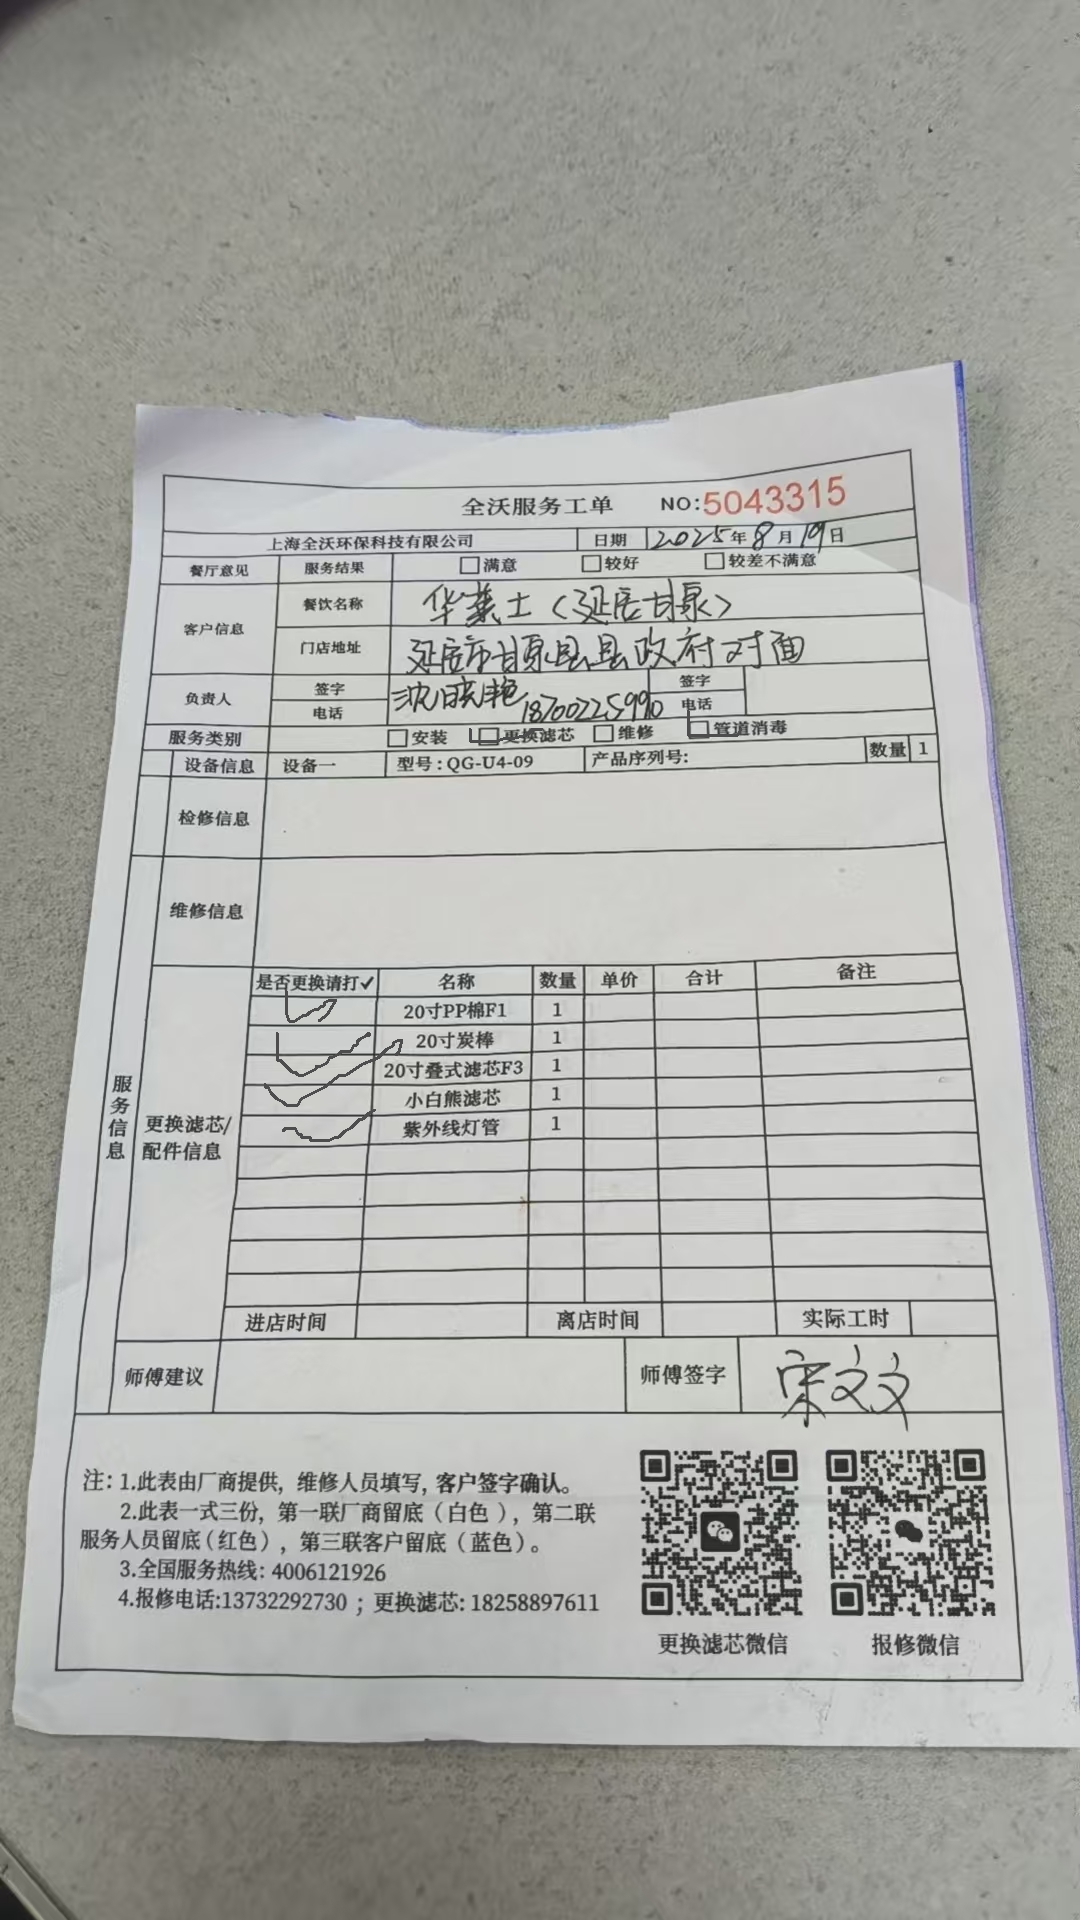 全沃服务工单 NO:5043315
上海全沃环保科技有限公司 日期 2025年8月19日
餐厅意见 服务结果 □满意 □较好 □较差不满意
客户信息 餐饮名称 华莱士(延居甘泉)
门店地址 延安市甘泉县县政府对面
负责人 签字 沈晓艳 签字
电话 18700225990 电话
服务类别 □安装 □更换滤芯 □维修 □管道消毒
设备信息 设备一 型号:QG-U4-09 产品序列号: 数量 1
检修信息
维修信息
服务信息
更换滤芯/配件信息
是否更换请打✓ 名称 数量 单价 合计 备注
✓ 20寸PP棉F1 1
✓ 20寸炭棒 1
✓ 20寸叠式滤芯F3 1
小白熊滤芯 1
✓ 紫外线灯管 1
进店时间 离店时间 实际工时
师傅建议 师傅签字 宋文文
注: 1.此表由厂商提供, 维修人员填写, 客户签字确认。
2.此表一式三份, 第一联厂商留底(白色), 第二联
服务人员留底(红色), 第三联客户留底(蓝色)。
3.全国服务热线: 4006121926
4.报修电话:13732292730 ; 更换滤芯: 18258897611
更换滤芯微信 报修微信